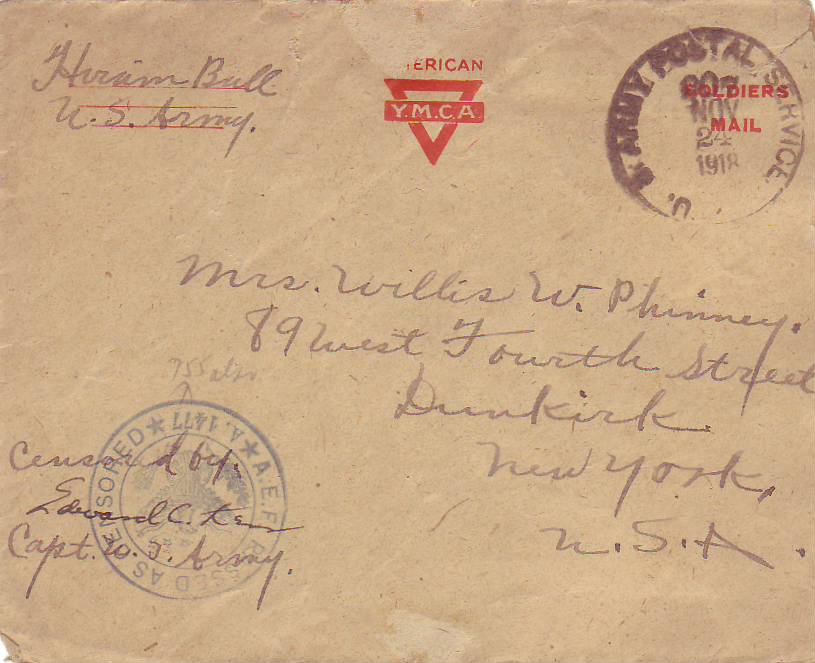 Hiram Bull
U.S. Army.
ERICAN
Y.M.C.A.
SOLDIERS
MAIL
U.S. ARMY POSTAL SERVICE
NOV
24
1918
Mrs. Willis W. Phinney.
89 West Fourth Street
Dunkirk.
New York,
U.S.A.
755 also
A.E.F. PASSED AS CENSORED
A. 1477
Censored by:
Edward C.
Capt. U.S. Army.